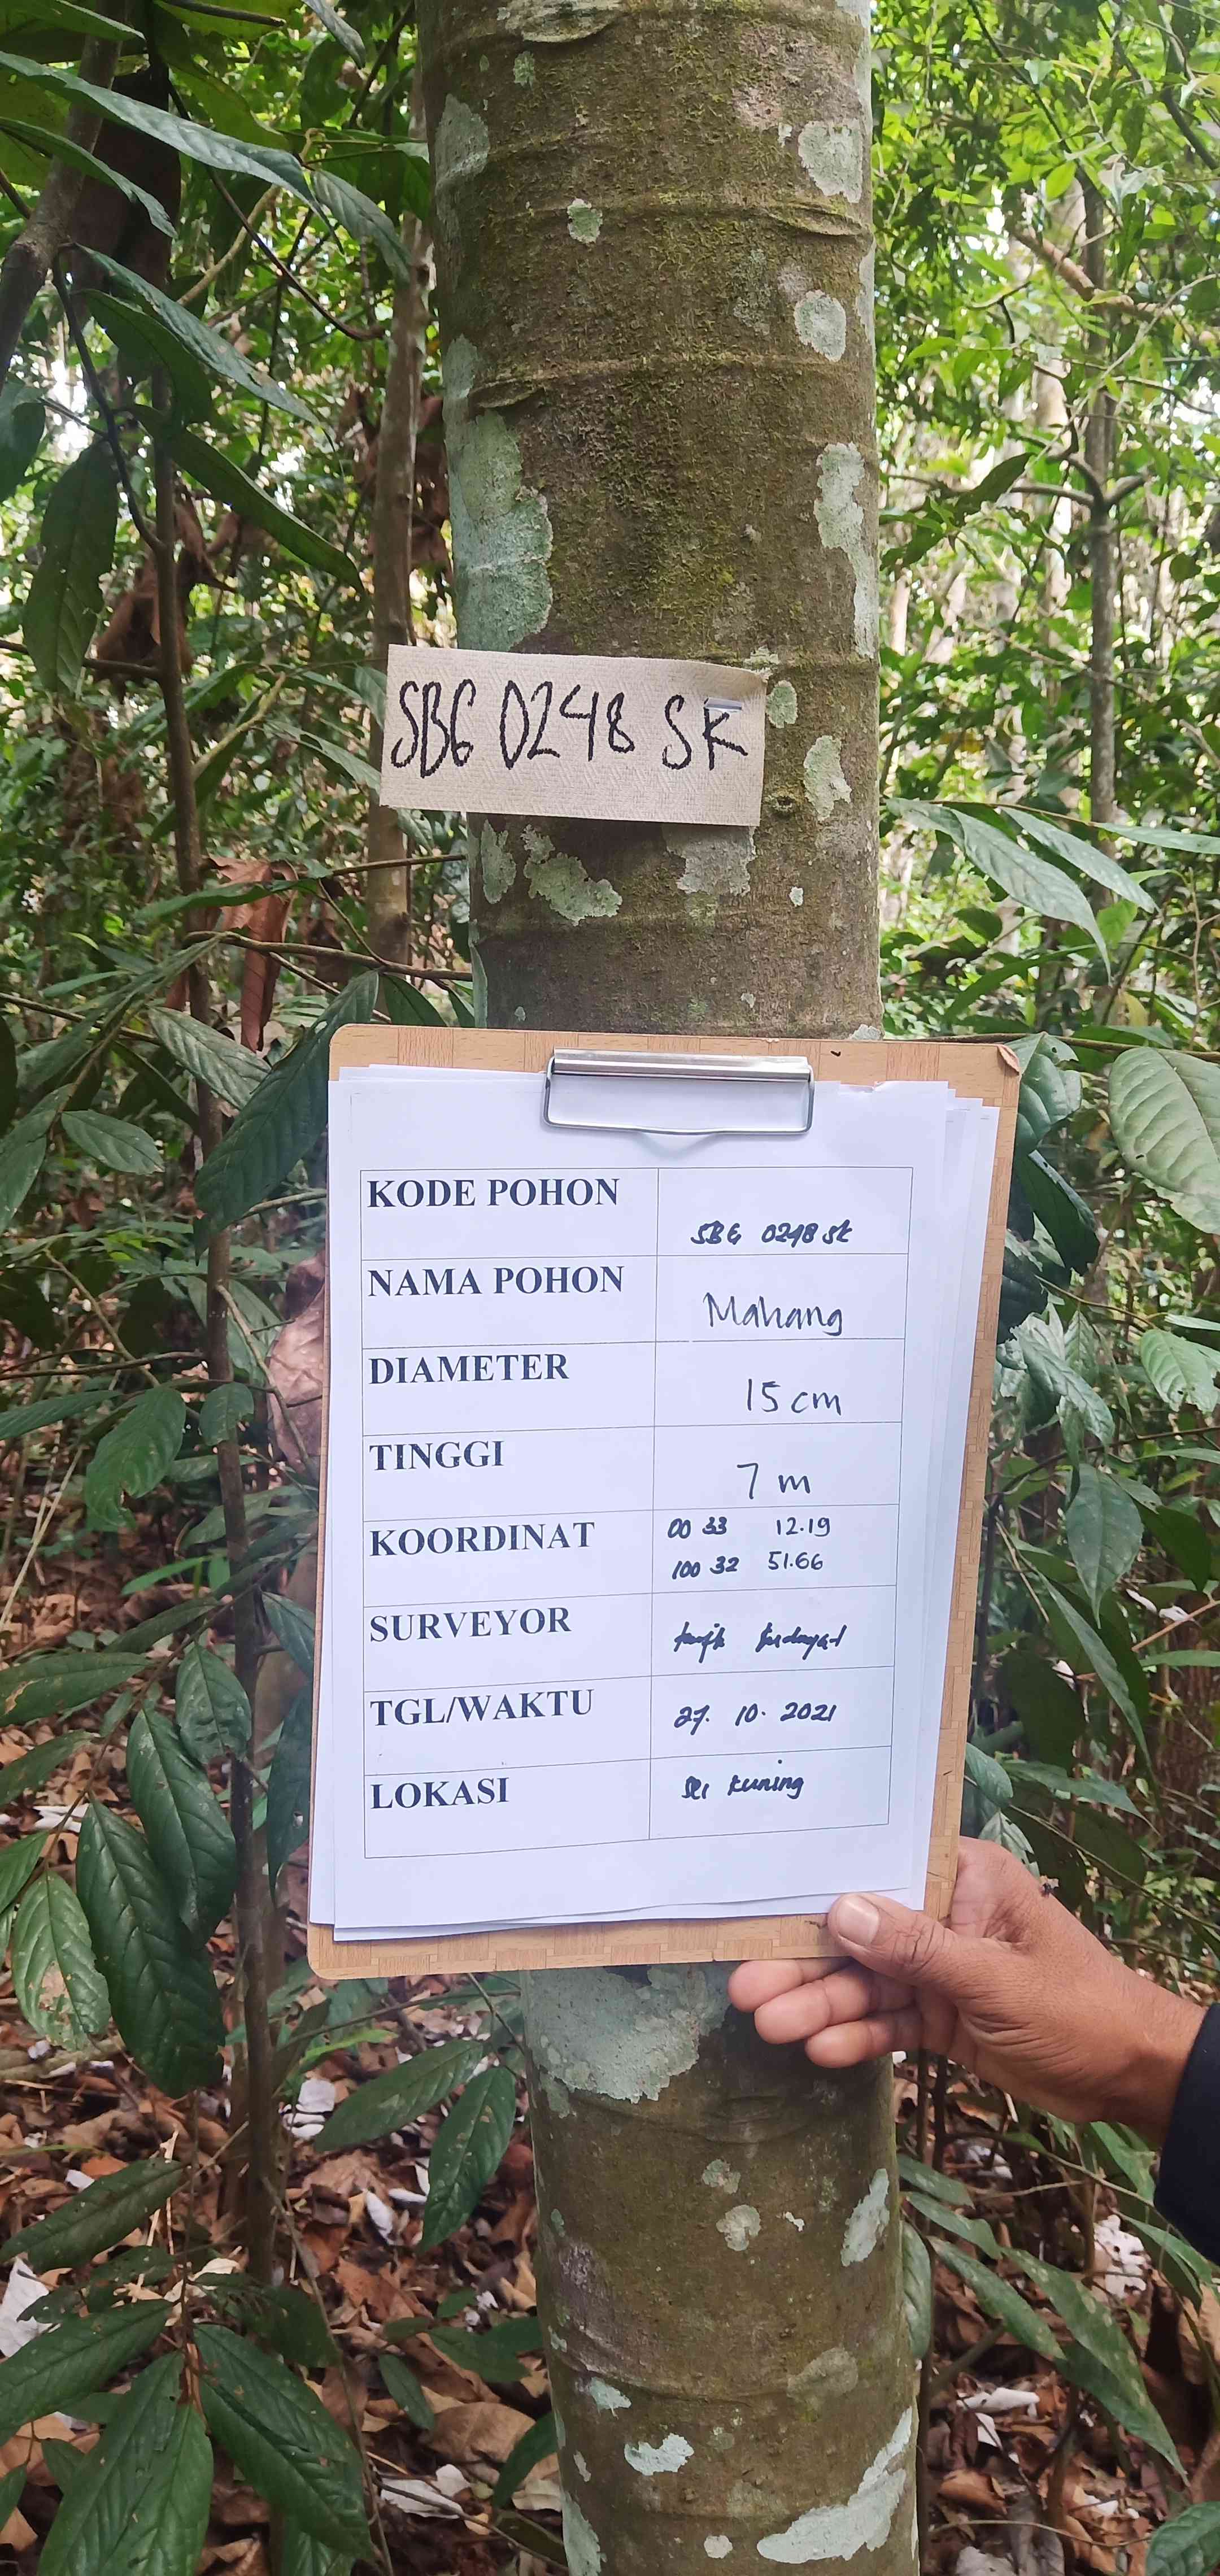 SBG 0248 SK
KODE POHON SBG 0248 SK
NAMA POHON Mahang
DIAMETER 15 cm
TINGGI 7 m
KOORDINAT 00 33 12.19
100 32 51.66
SURVEYOR
TGL/WAKTU 27. 10. 2021
LOKASI Sei Kuning